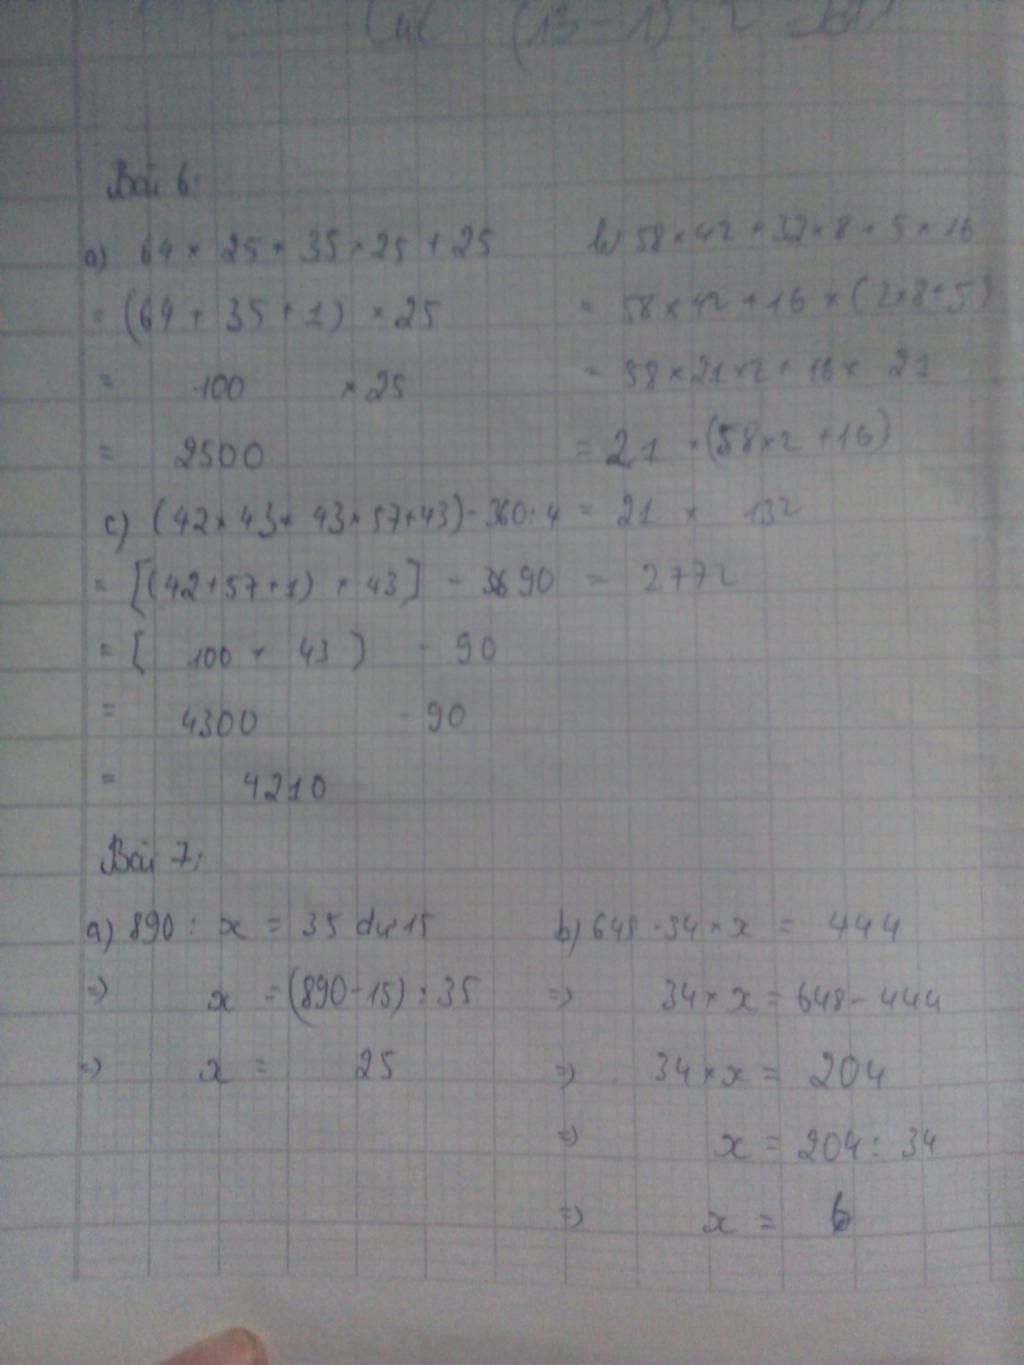 (13 - 1) : 2
Bài 6:
a) 64 × 25 + 35 × 25 + 25
= (64 + 35 + 1) × 25
= 100 × 25
= 2500
b) 58 × 42 + 32 × 8 + 5 × 16
= 58 × 42 + 16 × (2×8+5)
= 58 × 21 × 2 + 16 × 21
= 21 × (58×2 + 16)
= 21 × 132
= 2772
c) (42 × 43 + 43 × 57 + 43) - 360 : 4
= [(42+57+1) × 43] - 90
= [ 100 × 43 ] - 90
= 4300 - 90
= 4210
Bài 7:
a) 890 : x = 35 dư 15
=> x = (890-15) : 35
=> x = 25
b) 648 - 34 × x = 444
=> 34 × x = 648 - 444
=> 34 × x = 204
=> x = 204 : 34
=> x = 6